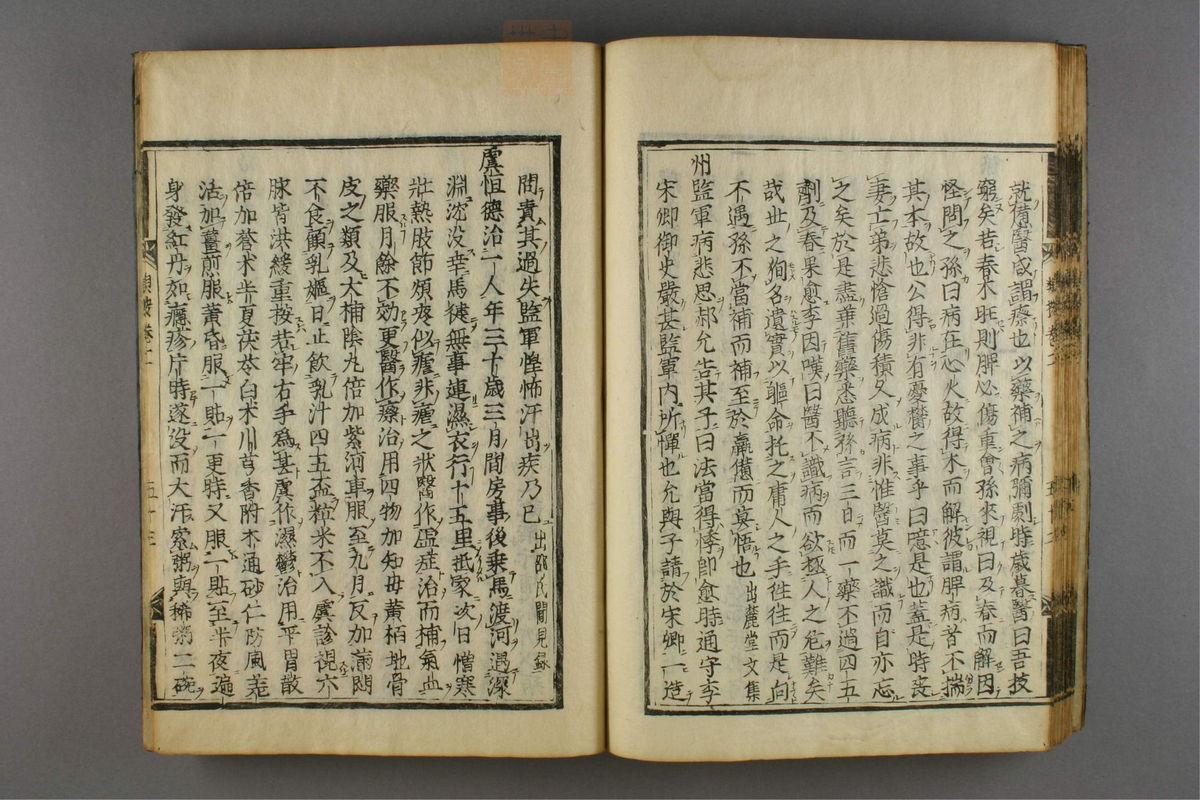 就憊醫咸謂瘵也以藥補之病彌劇時歲暮醫曰吾技
窮矣若春木旺則脾必傷重會孫來視曰及春而解因
怪問之孫曰病在心火故得木而解彼謂脾病者不揣
其本故也公得非有憂鬱之事乎曰噫是也蓋是時喪
妻亡弟悲愴過傷積久成病非惟醫莫之識而自亦忘
之矣於是盡棄舊藥悉聽孫言三日而一藥不過四五
劑及春果愈李因嘆曰醫不識病而欲拯人之危難矣
哉世之徇名遺實以軀命托之庸人之手往往而是向
不遇孫不當補而補至於羸憊而莫悟也 出麓堂文集
州監軍病悲思郝允告其子曰法當得悸即愈時通守李
宋卿御史嚴甚監軍內所憚也允與子請於宋卿一造
問責其過失監軍惶怖汗出疾乃已 出邵氏聞見錄
虞恒德治一人年三十歲三月間房事後乘馬渡河遇深
淵沈没幸馬健無事連濕衣行十五里抵家次日憎寒
壯熱肢節煩疼似瘧非瘧之狀醫作虛症治而補氣血
藥服月餘不効更醫作瘵治用四物加知母黃栢地骨
皮之類及大補陰丸倍加紫河車服至九月反加滿悶
不食顧乳嫗日止飲乳汁四五盃粒米不入虞診視六
脉皆洪緩重按若牢右手爲甚虞作濕鬱治用平胃散
倍加蒼朮半夏茯苓白朮川芎香附木通砂仁防風羌
活加薑煎服黃昏服一貼一更時又服一貼至半夜遍
身發紅丹如癮疹片時遂没而大汗索粥與稀粥二碗
五十三